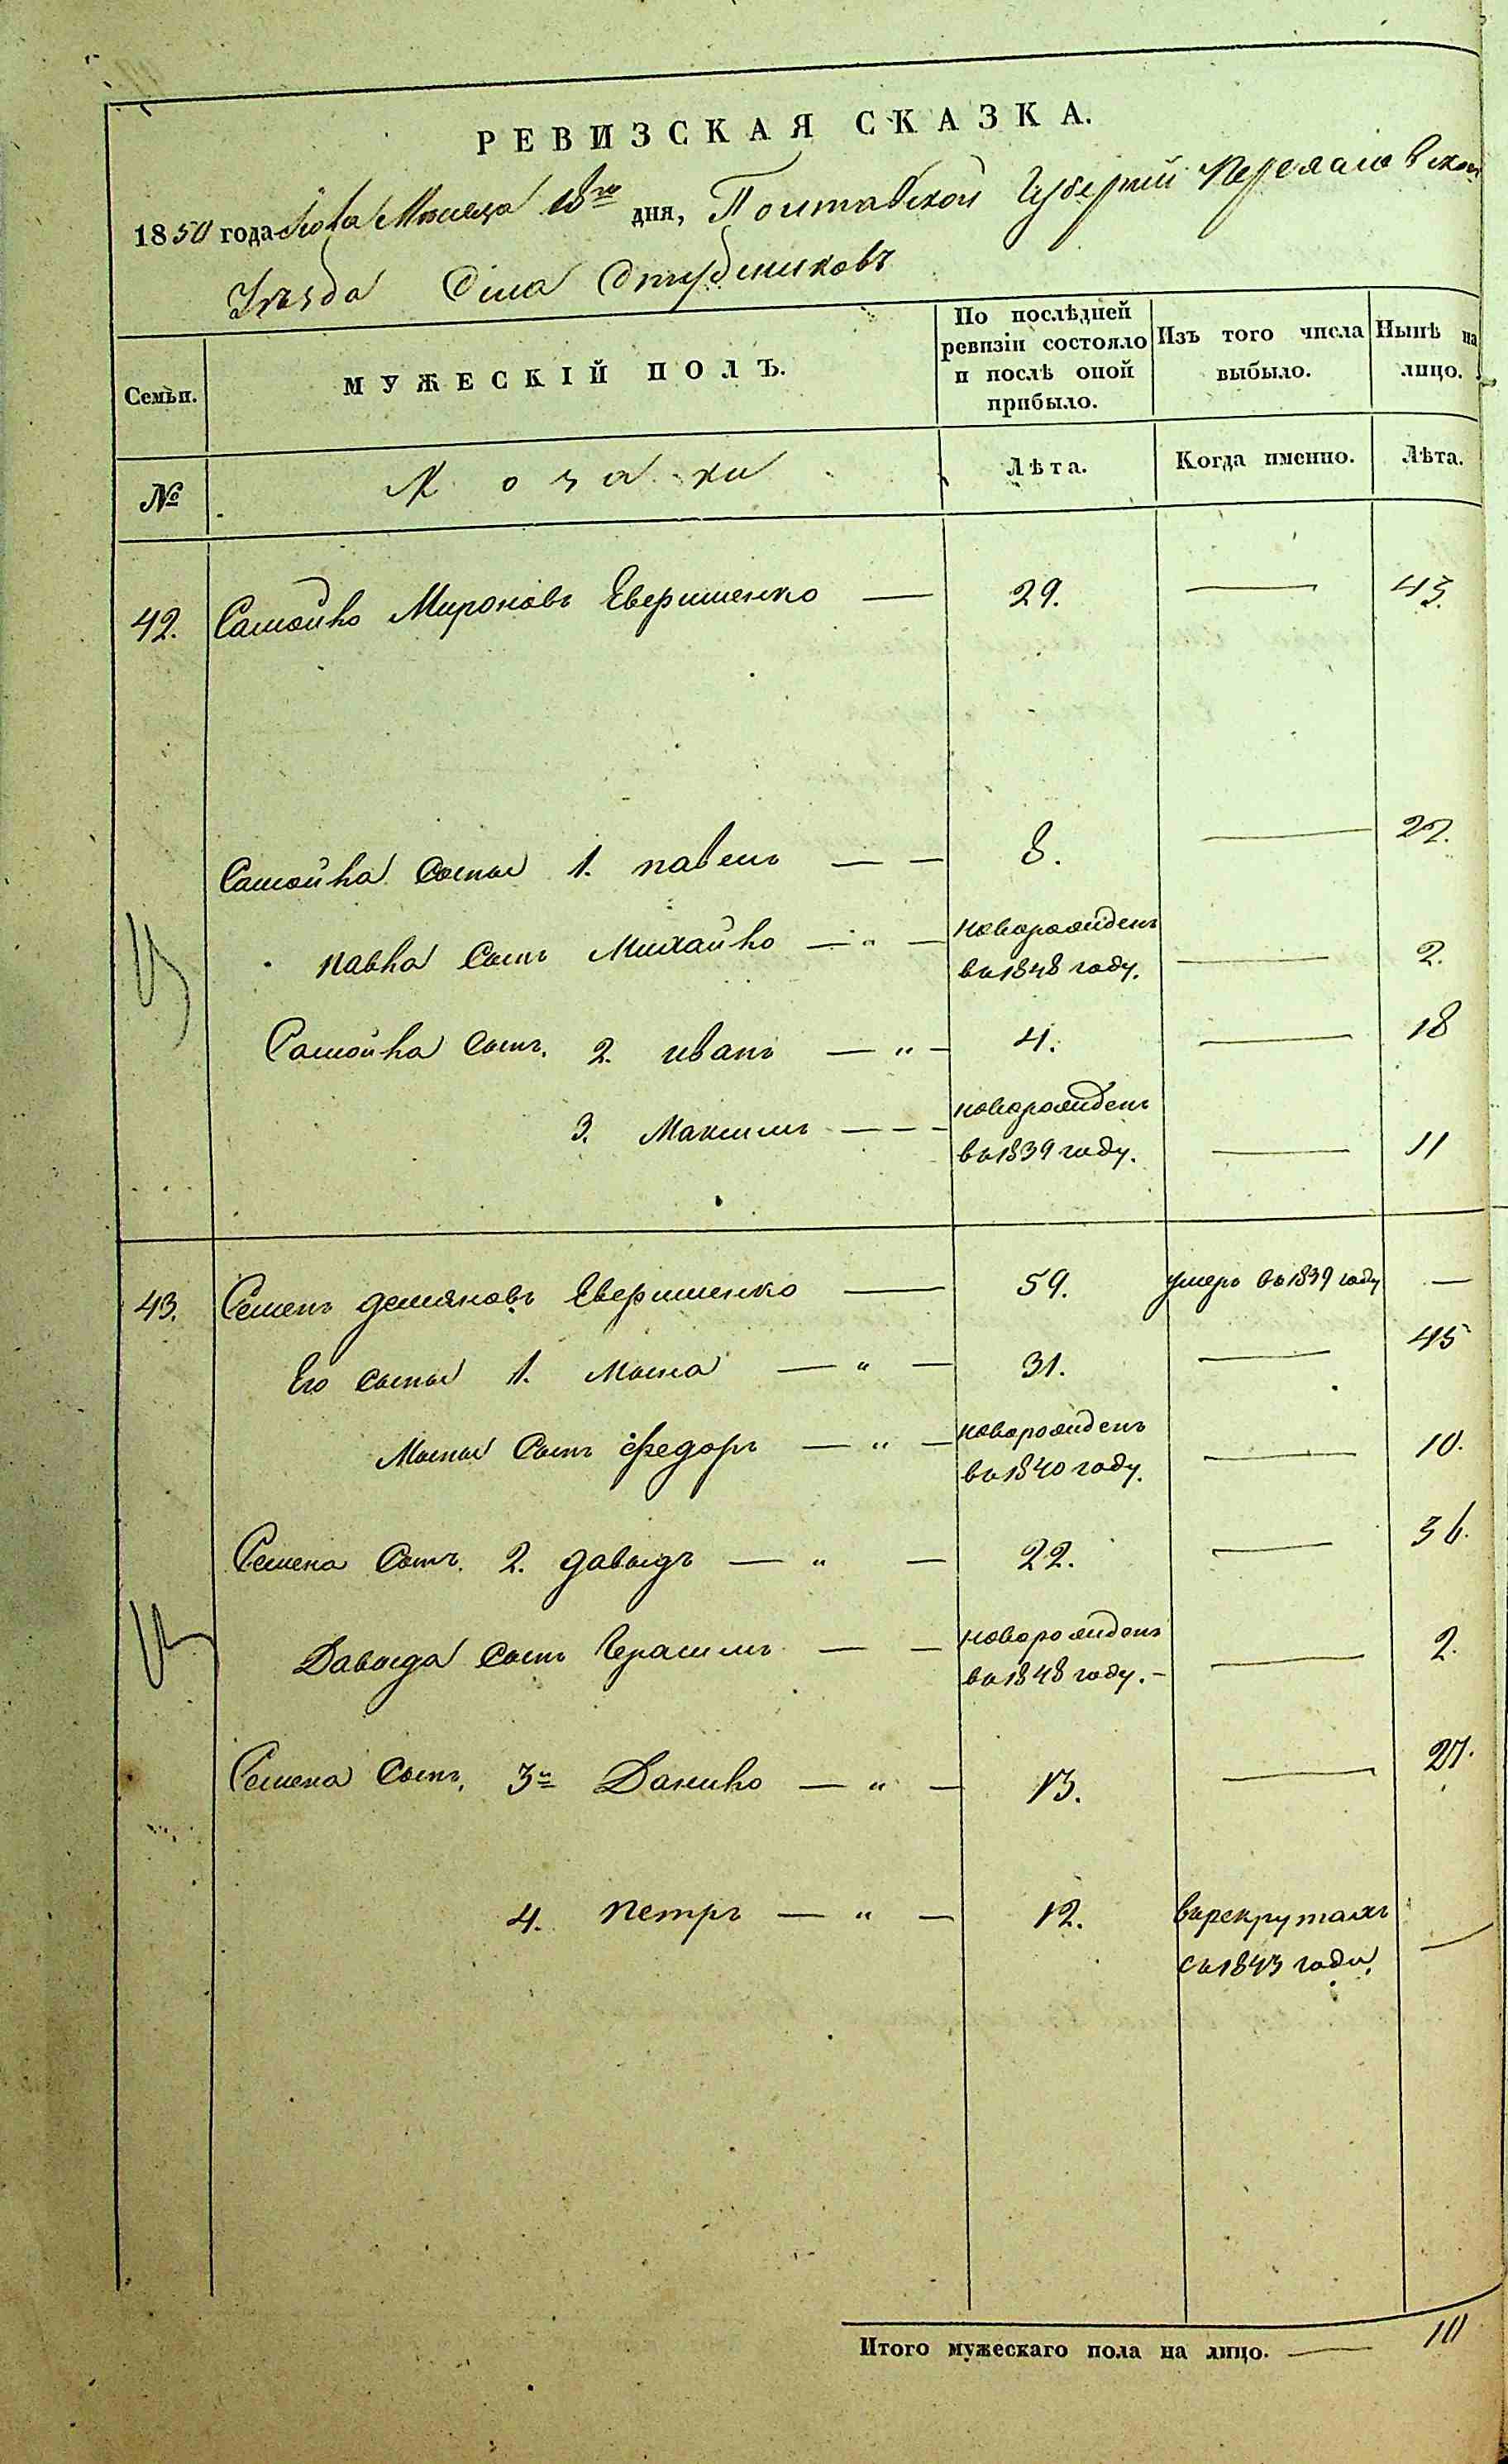 РЕВИЗСКАЯ СКАЗКА.
1850 года Мѣсяца 18го дня, Полтавской Губерніи Переяславской
Уѣзда Села Студениковъ
Семьи.
МУЖЕСКІЙ ПОЛЪ.
По послѣдней ревизіи состояло и послѣ оной прибыло.
Изъ того числа выбыло.
Нынѣ на лицо.
№
Козаки
Лѣта.
Когда именно.
Лѣта.
42. Самойло Мироновъ Евершенко — 29. — 43.
Самойла сыны 1. павелъ — — 8. — 22.
павла сынъ Михайло — „ — новорожденъ
въ 1848 году. — 2.
Самойла сынъ. 2. иванъ — „ — 4. — 18
3. Максимъ — — — новорожденъ
въ 1839 году. — 11
43. Семенъ демяновъ Евершенко — 59. умеръ въ 1839 году —
Его сыны 1. — „ — 31. — 45
сынъ федоръ — „ — новорожденъ
въ 1840 году. — 10.
Семена сынъ. 2. давыдъ — „ — 22. — 36.
Давыда сынъ Герасимъ — — новорожденъ
въ 1848 году. — — 2.
Семена сынъ. 3й Данило — „ — 13. — 27.
4. петръ — „ — 12. въ рекрутахъ
съ 1843 года. —
Итого мужескаго пола на лицо. — 10